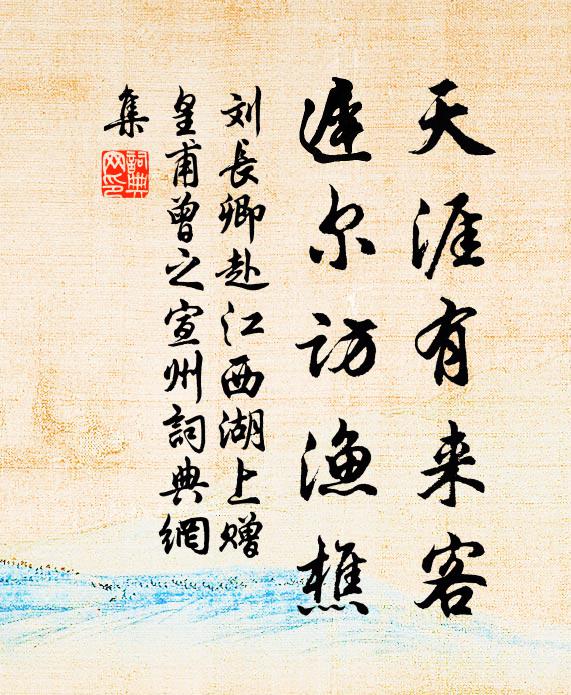 天涯有来客
迟尔访渔樵
刘长卿赴江西湖上赠
皇甫曾之宣州词典网
集
词典
网印